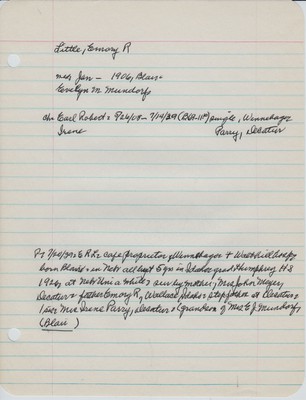 Little, Emory R
mar Jan - 1906, Blair -
Evelyn M. Mundorf
ch: Earl Robert: 9/26/08 - 7/19/39 single, Winnebago
Irene Parry, Decatur
Pt 7/20/39: ERL: cafe proprietor Winnebago +
born Blair: in Neb all but 5 yrs in Idaho: grad Humphrey H S
1926: at Neb Uni a while: sur by mother, Mrs John Meyer,
Decatur: father Emory R, Wallace Idaho: stepfather at Decatur:
1 sis: Mrs Irene Parry, Decatur: (grandson of Mrs E J Mundorf,
(Blair)